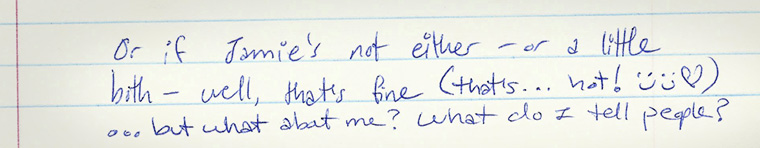 Or if Jamie's not either - or a little
both - well, that's fine (that's... hot! ü ü ♡)
... but what about me? What do I tell people?